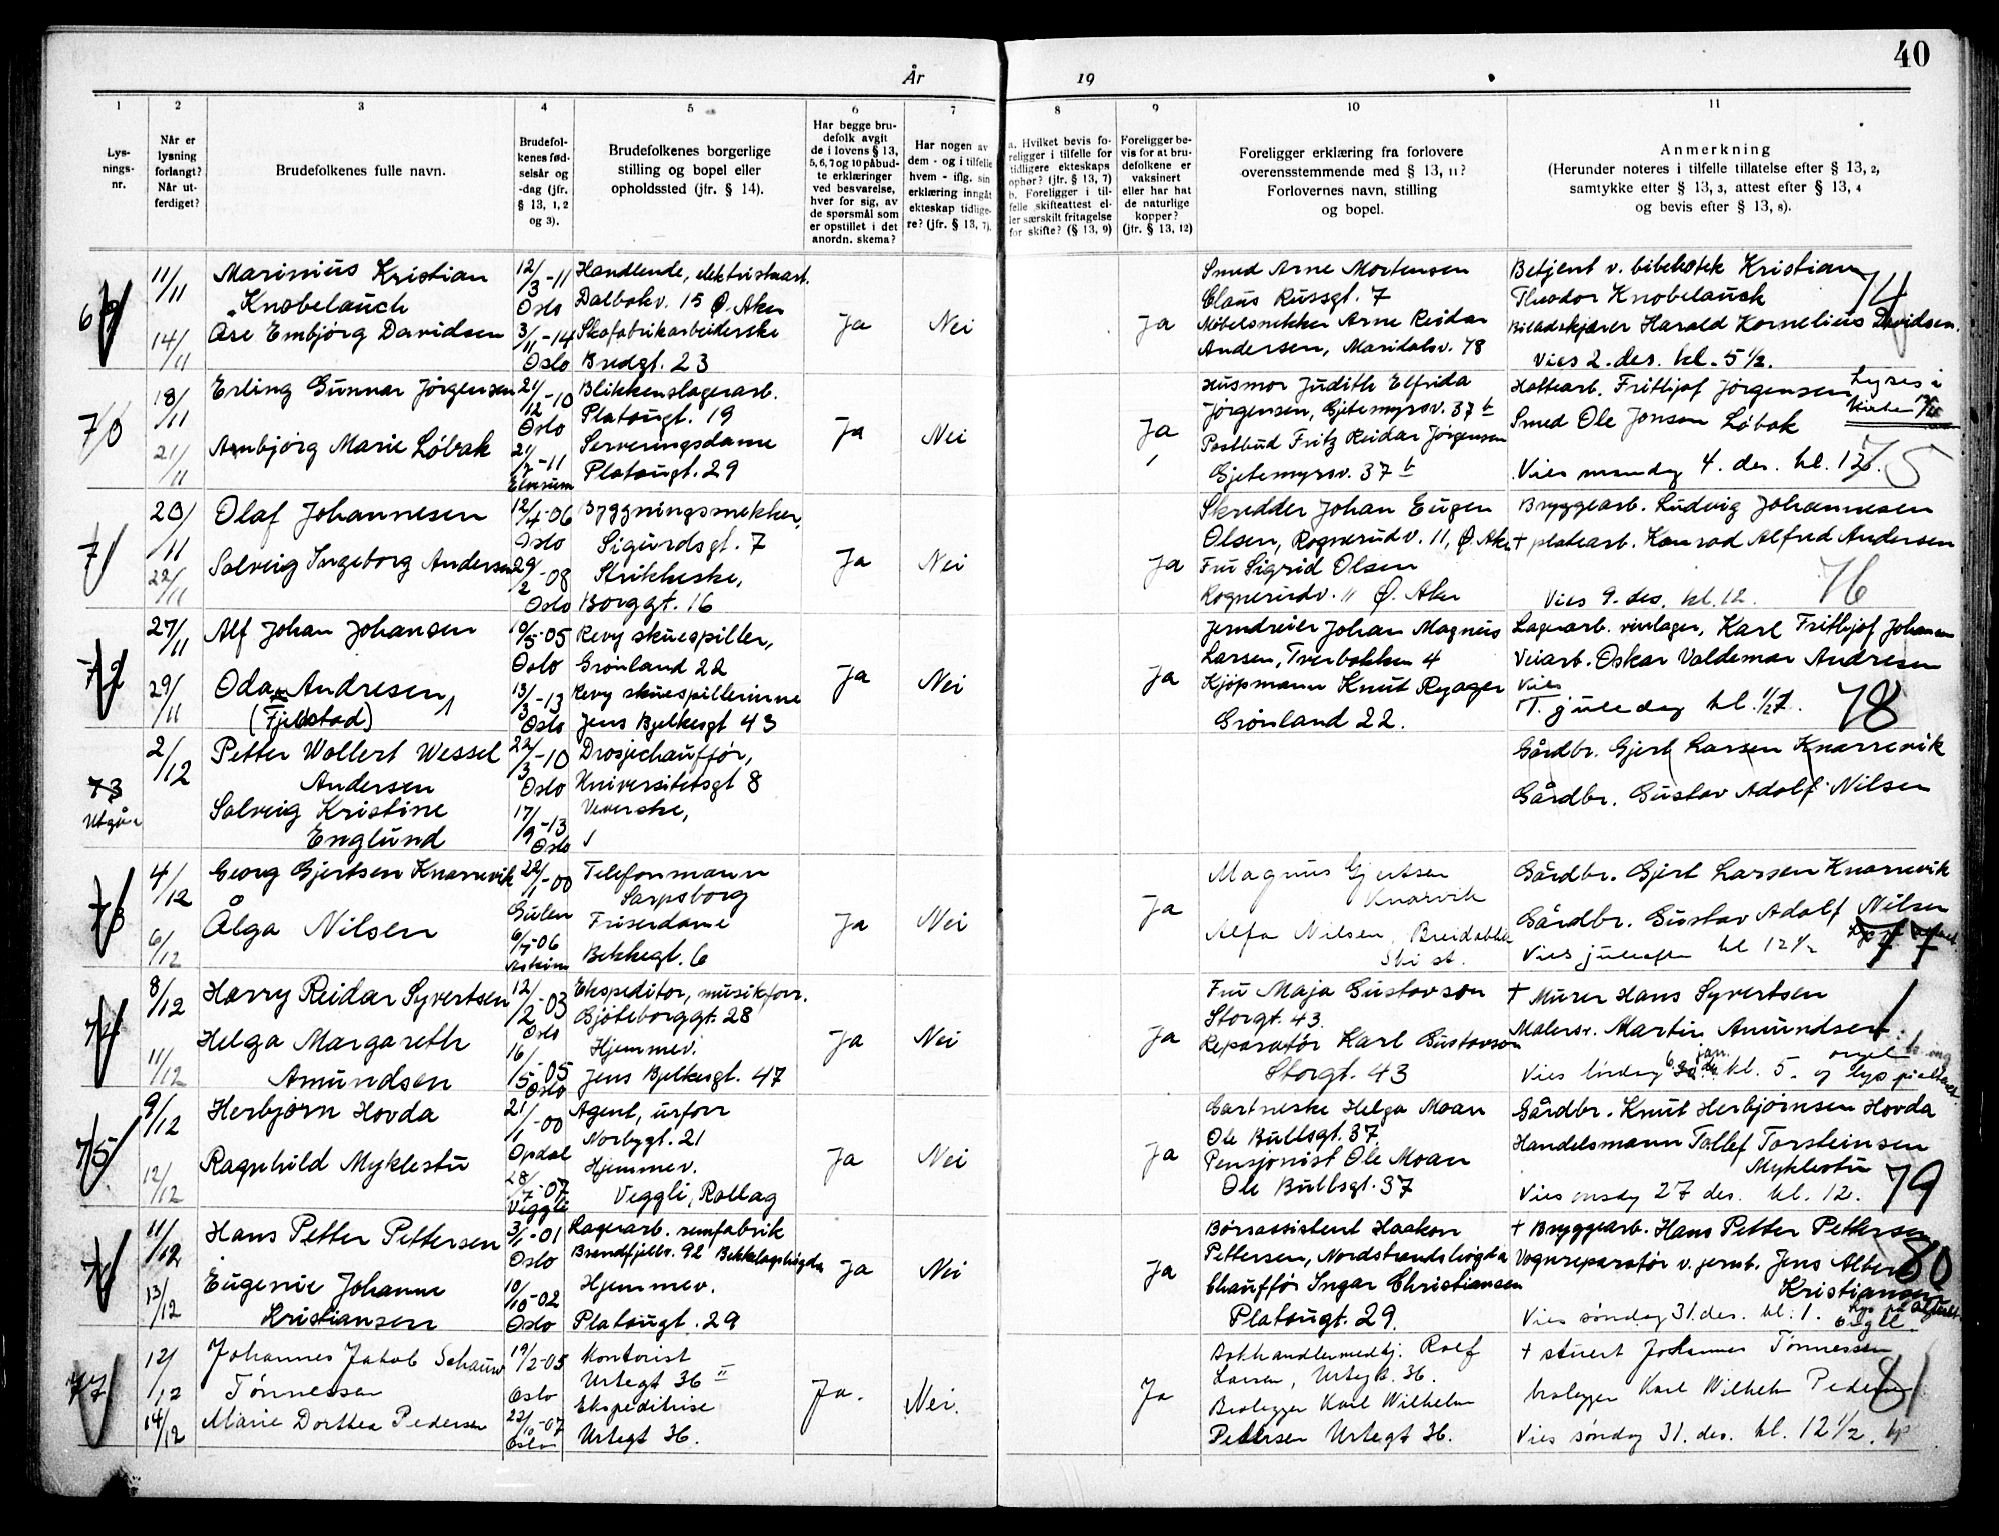 40
År 19
1 2 3 4 5 6 7 8 9 10 11
Lys-
nings-
nr.
Når er
lysning
forlangt?
Når ut-
ferdiget?
Brudefolkenes fulle navn.
Brudefol-
kenes fød-
selsår og
-dag (jfr.
§ 13, 1, 2
og 3).
Brudefolkenes borgerlige
stilling og bopel eller
opholdssted (jfr. § 14).
Har begge bru-
defolk avgit
de i lovens § 13,
5, 6, 7 og 10 påbud-
te erklæringer
ved besvarelse,
hver for sig, av
de spørsmål som
er opstillet i det
anordn. skema?
Har nogen av
dem - og i tilfelle
hvem - iflg. sin
erklæring inngåt
ekteskap tidlige-
re? (jfr. § 13, 7).
a. Hvilket bevis fo-
religger i tilfelle for
tidligere ekteskaps
ophør? (jfr. § 13, 7)
b. Foreligger i til-
felle skifteattest el-
ler særskilt fritagelse
for skifte? (§ 13, 9)
Foreligger be-
vis for at bru-
defolkene er
vaksinert
eller har hat
de naturlige
kopper?
(jfr. § 13, 12)
Foreligger erklæring fra forlovere
overensstemmende med § 13, 11?
Forlovernes navn, stilling
og bopel.
Anmerkning
(Herunder noteres i tilfelle tillatelse efter § 13, 2,
samtykke efter § 13, 3, attest efter § 13, 4
og bevis efter § 13, 8).
69
11/11
14/11
Marinius Kristian
Knobelauch
Åse Embjørg Davidsen
12/3-11
Oslo
3/11-14
Oslo
Handlende,
Dalbakv. 15 Ø. Aker
Skofabrikarbeiderske
Bredgt. 23
Ja
Nei
Ja
Smed Arne Mortensen
Claus Russgt. 7
Møbelsnekker Arne Reidar
Andersen, Maridalsv. 78
Betjent v. bibelotek Kristian
Theodor Knobelauch
Harald Kornelius Davidsen.
Vies 2. des. kl. 5½.
74
70
18/11
21/11
Erling Gunnar Jørgensen
Arnbjørg Marie Løbak
21/12-10
Oslo
21/7-11
Elverum
Blikkenslagerarb.
Platougt. 19
Serveringsdame
Platougt. 29
Ja
Nei
Ja
Husmor Judith Elfrida
Jørgensen, Gjetemyrsv. 37 b
Postbud Fritz Reidar Jørgensen
Gjetemyrsv. 37 b
Hattearb. Frithjof Jørgensen
Lyses i
Smed Ole Jonson Løbak
Vies mandag 4. des. kl. 12.
75
71
20/11
22/11
Olaf Johannesen
Solveig Ingeborg Andersen
12/4-06
Oslo
29/2-08
Oslo
Bygningsnekker,
Sigurdsgt. 7
Strikkeske,
Borggt. 16
Ja
Nei
Ja
Skredder Johan Eugen
Olsen, Rognerudv. 11, Ø. Aker
Fru Sigrid Olsen
Rognerudv. 11 Ø. Aker
Bryggearb. Ludvig Johannesen
+ platearb. Konrad Alfred Andersen
Vies 9. des. kl. 12.
76
72
27/11
29/11
Alf Johan Johansen
Oda Andresen
(Fjeldstad)
10/5-05
Oslo
13/3-13
Oslo
Revy skuespiller,
Grønland 22
Revy skuespillerinne
Jens Bjelkesgt 43
Ja
Nei
Ja
Jerndreier Johan Magnus
Larsen, Tverbakken 4
Kjøpmann Knut Ryager
Grønland 22.
Lagerarb. vinlager, Karl Frithjof Johansen
Veiarb. Oskar Valdemar Andresen
Vies
1. juledag kl. ½7.
78
73
Utgår
2/12
Petter Wollert Wessel
Andersen
Solveig Kristine
Englund
22/3-10
Oslo
17/9-13
Oslo
Drosjechauffør,
Universitetsgt 8
Veverske,
Gårdbr. Gjert Larsen Knarrevik
Gårdbr. Gustav Adolf Nilsen
73
4/12
6/12
Georg Gjertsen Knarrevik
Ålga Nilsen
22/1-00
Gulen
6/7-06
Askim
Telefonmann
Sarpsborg
Friserdame
Bekkegt. 6
Ja
Nei
Ja
Magnus Gjertsen
Knarvik
Alfa Nilsen, Breidablikk
Ski st.
Gårdbr. Gjert Larsen Knarrevik
Gårdbr. Gustav Adolf Nilsen
Vies juleaften kl 12½
77
74
8/12
11/12
Harry Reidar Syvertsen
Helga Margareth
Amundsen
12/2-03
Oslo
16/5-05
Oslo
Ekspeditor, musikforr.
Gjøteborggt. 28
Hjemmev.
Jens Bjelkesgt. 47
Ja
Nei
Ja
Fru Maja Gustavson
Storgt. 43.
Reparatør Karl Gustavson
Storgt. 43
+ Murer Hans Syvertsen
Malersv. Martin Amundsen.
Vies lørdag 6 jan. kl. 5. og lys på alteret
1
75
9/12
12/12
Herbjørn Hovda
Ragnhild Myklestu
21/1-00
Opdal
28/7-07
Veggli
Agent, urforr
Norbygt. 21
Hjemmev.
Veggli, Rollag
Ja
Nei
Ja
Gartneske Helga Moan
Ole Bullsgt. 37
Pensjonist Ole Moan
Ole Bullsgt. 37
Gårdbr. Knut Herbjørnsen Hovda
Handelsmann Tollef Torsteinsen
Myklestu
Vies onsdag 27 des. kl. 12.
79
76
11/12
13/12
Hans Petter Pettersen
Eugenie Johanne
Kristiansen
3/1-01
Oslo
10/10-02
Oslo
Lagerarb. remfabrik
Brandfjellv. 92 Bekkelagshøgda
Hjemmev.
Platougt. 29
Ja
Nei
Ja
Børsassistent Haakon
Pettersen, Nordstrandshøgda
Chauffør Ingar Christiansen
Platougt. 29.
+ Bryggearb. Hans Petter Pettersen
Vognreparatør v. jernb. Jens Albert
Kristiansen
Vies søndag 31. des. kl. 1. Lys på alteret
orgel
80
77
12/12
14/12
Johannes Jakob Schauw
Tønnessen
Marie Dorthea Pedersen
19/2-05
Oslo
22/10-07
Oslo
Kontorist
Urtegt 36 II
Ekspeditrise
Urtegt 36.
Ja.
Nei.
Ja
Bokhandlermedhj. Rolf
Larsen, Urtegt. 36.
Beslegger Karl Wilhelm
Pettersen Urtegt 36.
+ stuert Johannes Tønnessen
beslegger Karl Wilhelm Pedersen
Vies søndag 31. des. kl. 12½. lys
81